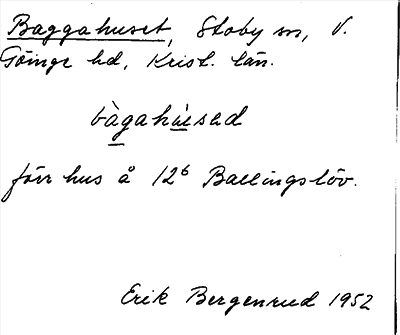 Baggahuset, Stoby sn, V.
Göinge hd, Krist. län.
bàgahùsəd
förr hus å 12⁶ Ballingslöv.
Erik Bergenrud 1952